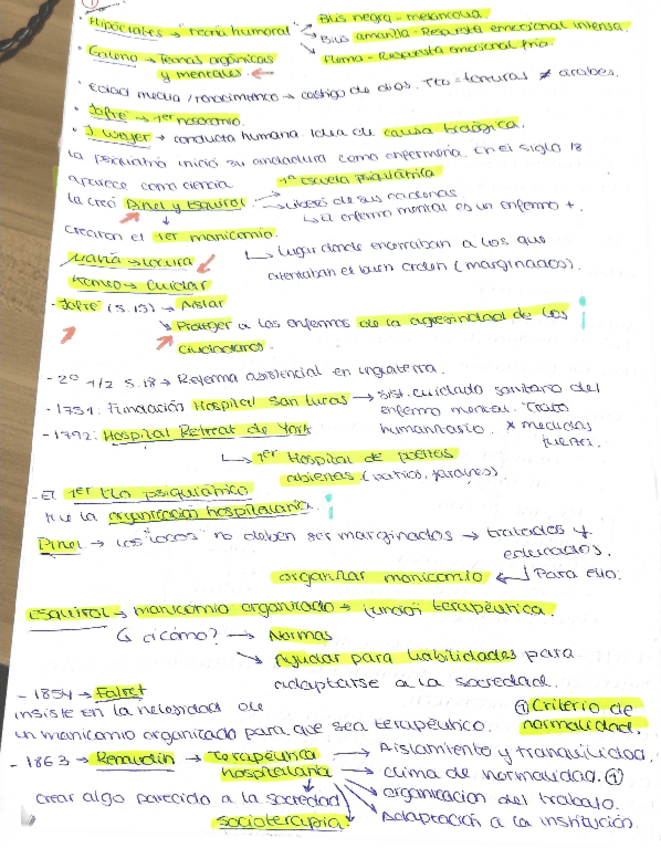 ①
· Hipócrates → "teoría humoral" → Bilis negra - melancolía.
→ Bilis amarilla - Respuesta emocional intensa.
→ Flema - Respuesta emocional fría.
· Galeno → Teorías orgánicas
y mentales. ←
· Edad media / renacimiento → castigo de dios. Tto = torturas ≠ árabes.
· Jofré → 1er nosocomio.
· J. Weyer → conducta humana. Idea de causa biológica.
La psiquiatría inició su andadura como enfermería. En el siglo 18
aparece como ciencia
1ª Escuela psiquiátrica
La creó Pinel y Esquirol → Liberó de sus cadenas.
↳ El enfermo mental es un enfermo +.
Crearon el 1er manicomio.
↳ Lugar donde encerraban a los que
atentaban el buen orden (marginados).
Manía → locura
Komeo → Cuidar
- Jofré (s. 15) → Aislar
↘ Proteger a los enfermos de la agresividad de los
ciudadanos.
- 2º 1/2 s. 18 → Reforma asistencial en Inglaterra.
- 1751: Fundación Hospital San Lucas → Sist. cuidado sanitario del
enfermo mental. Trato
humanitario. × medidas
fuerza.
- 1792: Hospital Retreat de York
↳ 1er Hospital de puertas
abiertas. (patios, jardines)
- El 1er tto psiquiátrico
fue la organización hospitalaria.
Pinel → los "locos" no deben ser marginados → tratados y
educados.
organizar manicomio ↲ Para ello:
Esquirol → manicomio organizado → función terapéutica.
↳ ¿cómo? → Normas
↘ Ayudar para habilidades para
adaptarse a la sociedad.
- 1854 → Falret
insiste en la necesidad de
un manicomio organizado para que sea terapéutico.
① Criterio de
normalidad.
- 1863 → Renaudin → Terapéutica
hospitalaria
→ Aislamiento y tranquilidad.
→ clima de normalidad. ①
→ organización del trabajo.
→ Adaptación a la institución.
crear algo parecido a la sociedad
socioterapia.